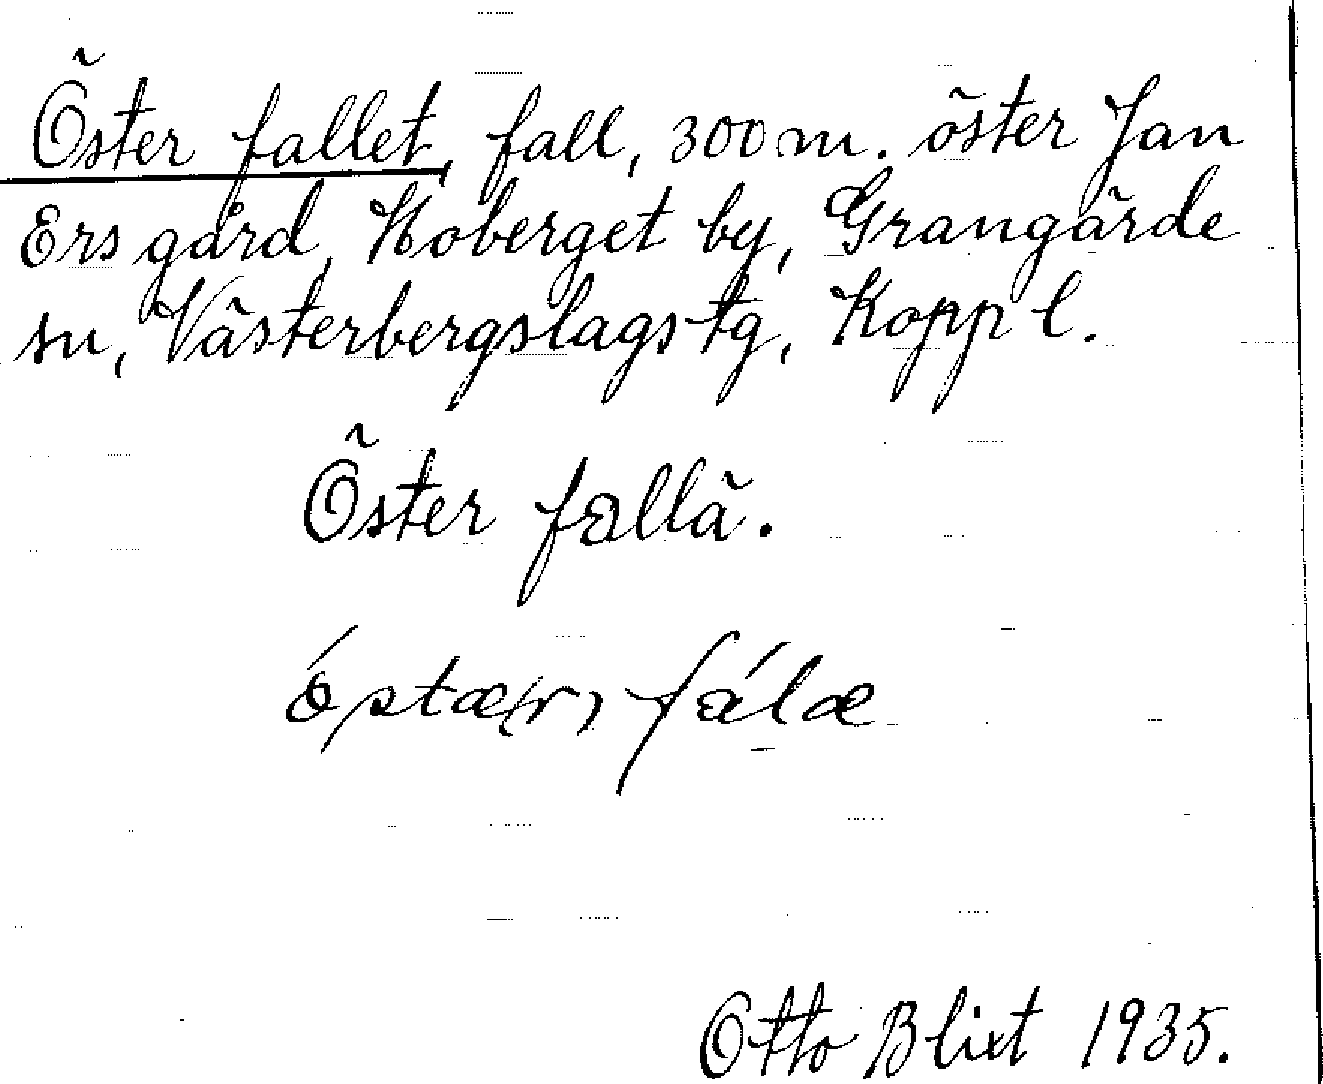 Öster fallet, fall, 300 m. öster Jan
Ers gård, Hoberget by, Grangärde
sn, Västerbergslags tg, Kopp l.
Öster fallä.
óstæ(r) fálæ
Otto Blixt 1935.